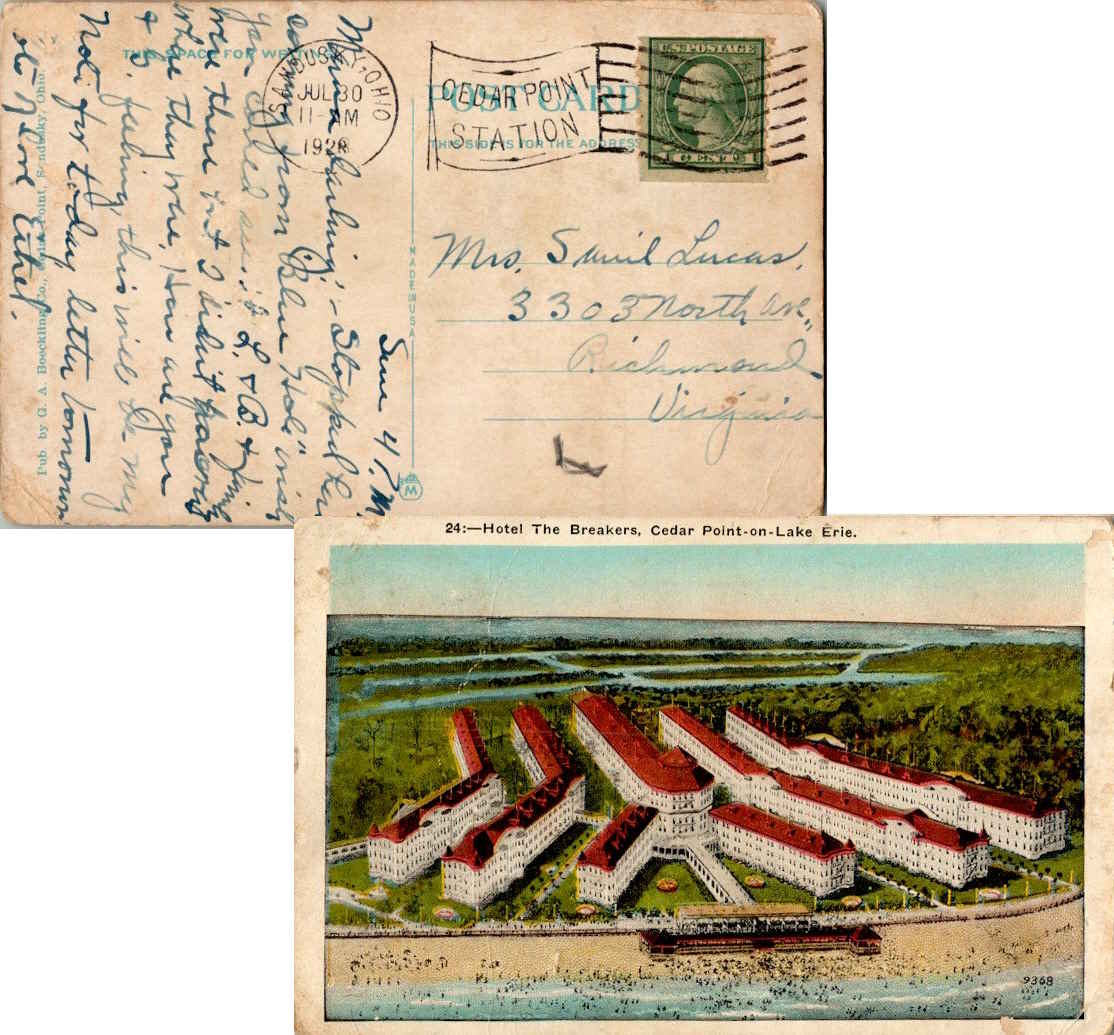 THIS SPACE FOR WRITING
POST CARD
THIS SIDE IS FOR THE ADDRESS
SANDUSKY, OHIO
JUL 30
11-AM
192
CEDAR POINT
STATION
U.S. POSTAGE
1 CENT 1
MADE IN U.S.A.
M
Pub. by G. A. Boeckling Co., Cedar Point, Sandusky, Ohio.
Mrs. Lucas,
3303 North Ave.,
Richmond,
Virginia
Sun 4 P.M.
darling: - Stopped here
coming from "Blue Hole" wish
you L. & B. & Jim
were there but I didn't
where they were, How are you
& B. feeling, this will be my
note for today letter tomorrow
Love Ethel.
24:—Hotel The Breakers, Cedar Point-on-Lake Erie.
9368